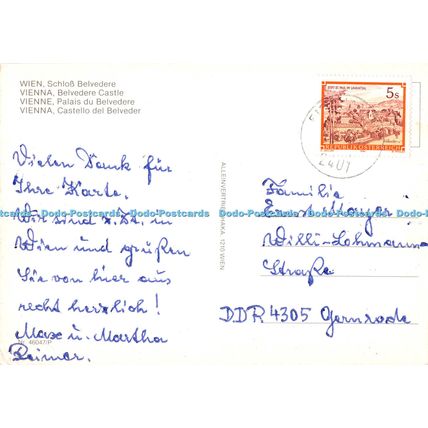 WIEN, Schloß Belvedere
VIENNA, Belvedere Castle
VIENNE, Palais du Belvedere
VIENNA, Castello del Belveder
Vielen Dank für
Ihre Karte.
Wir sind z.Zt. in
Wien und grüßen
Sie von hier aus
recht herzlich!
Max u. Martha
Reimer.
Nr. 46047/P
ALLEINVERTRIEB 1210 WIEN
5s
STIFT ST. PAUL IM LAVANTTAL
REPUBLIK ÖSTERREICH
2401
Familie
Willi-Lohmann-
Straße
DDR 4305 Gernrode
Dodo-Postcards Dodo-Postcards Dodo-Postcards Dodo-Postcards